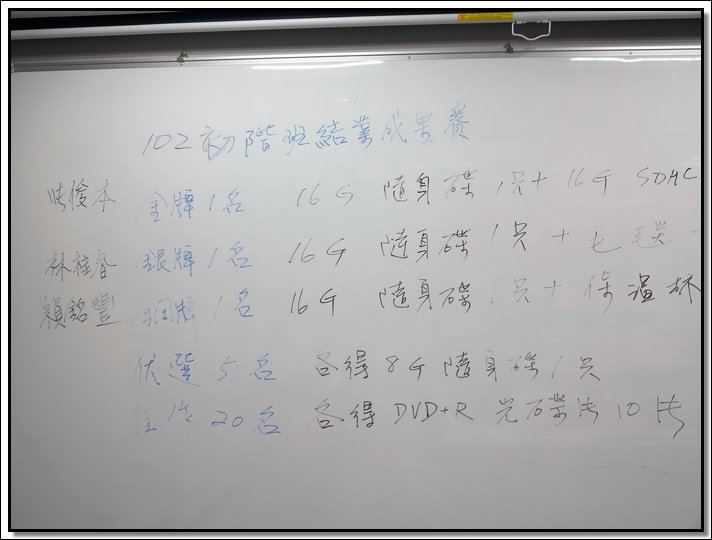 102初階班結業成果賽
張俊本 金牌1名 16G 隨身碟1只+16G SDHC
林桂春 銀牌1名 16G 隨身碟1只+毛毯一
穎銘豐 銅牌1名 16G 隨身碟1只+保溫杯
优選5名 各得8G隨身碟1只
佳作20名 各得DVD+R 光碟片10片